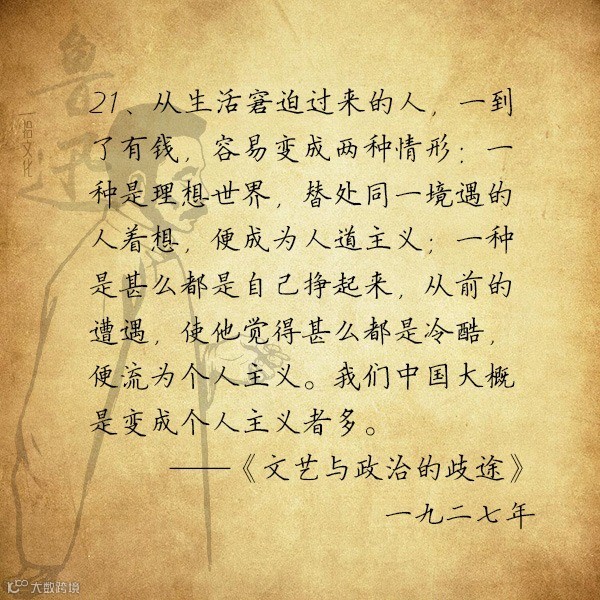 鲁迅
拾文化
21、从生活窘迫过来的人，一到
了有钱，容易变成两种情形：一
种是理想世界，替处同一境遇的
人着想，便成为人道主义；一种
是甚么都是自己挣起来，从前的
遭遇，使他觉得甚么都是冷酷，
便流为个人主义。我们中国大概
是变成个人主义者多。
——《文艺与政治的歧途》
一九二七年
大数跨境